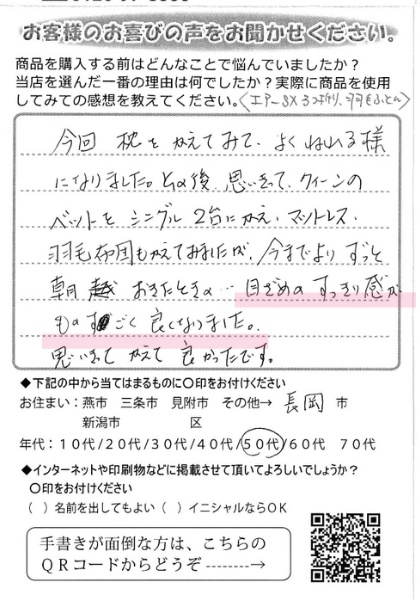 お客様のお喜びの声をお聞かせください。
商品を購入する前はどんなことで悩んでいましたか?
当店を選んだ一番の理由は何でしたか?実際に商品を使用
してみての感想を教えてください。〈エアーSX 3つ折り、羽毛ふとん〉
今回 枕を かえてみて、よく ねれる様
になりました。その後、思いきって、クイーンの
ベットを シングル 2台にかえ、マットレス、
羽毛布団もかえてみましたが、今までより ずっと
朝 おきたときの… 目ざめの すっきり感が
ものすごく 良くなりました。
思いきって かえて 良かったです。
◆下記の中から当てはまるものに〇印をお付けください
お住まい:燕市 三条市 見附市 その他→ 長岡 市
新潟市 区
年代:10代/20代/30代/40代/50代/60代 70代
◆インターネットや印刷物などに掲載させて頂いてよろしいでしょうか?
〇印をお付けください
( )名前を出してもよい ( )イニシャルならOK
手書きが面倒な方は、こちらの
QRコードからどうぞ-------->